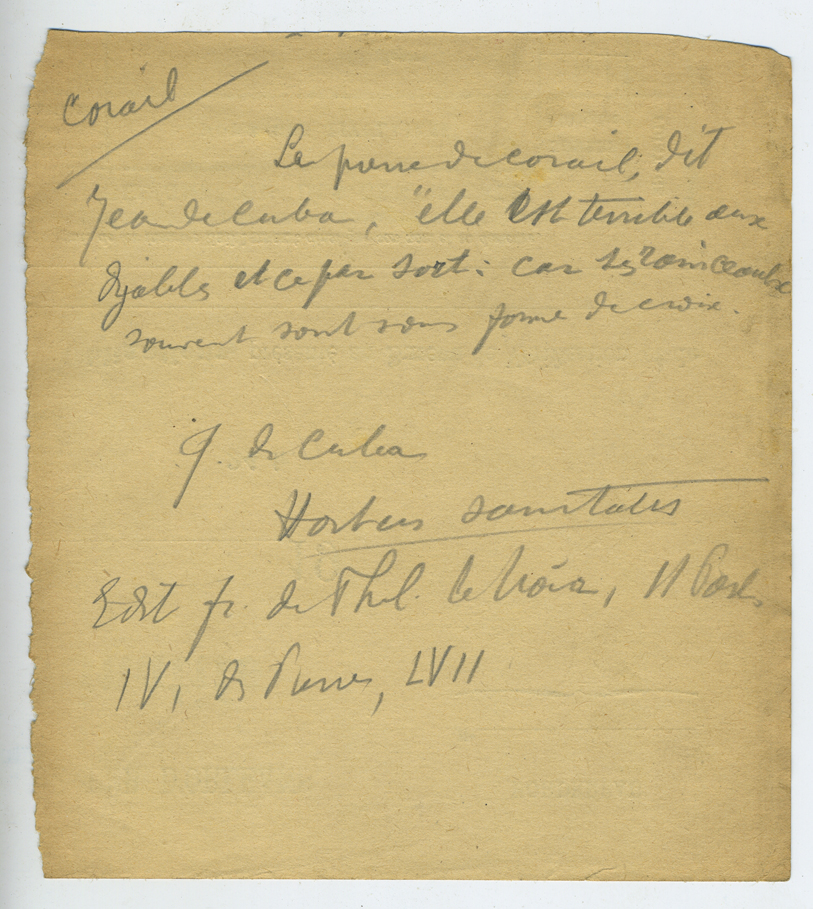 Corail
La pierre de corail, dit
Jean de Cuba, "elle est terrible aux
dyables et ce par sort : car ses rainceaulx
souvent sont sous forme de croix.
J. de Cuba
Hortus sanitatis
Edit fr. de Phil. le Noir, II Part.
IV, des Pierres, LVII